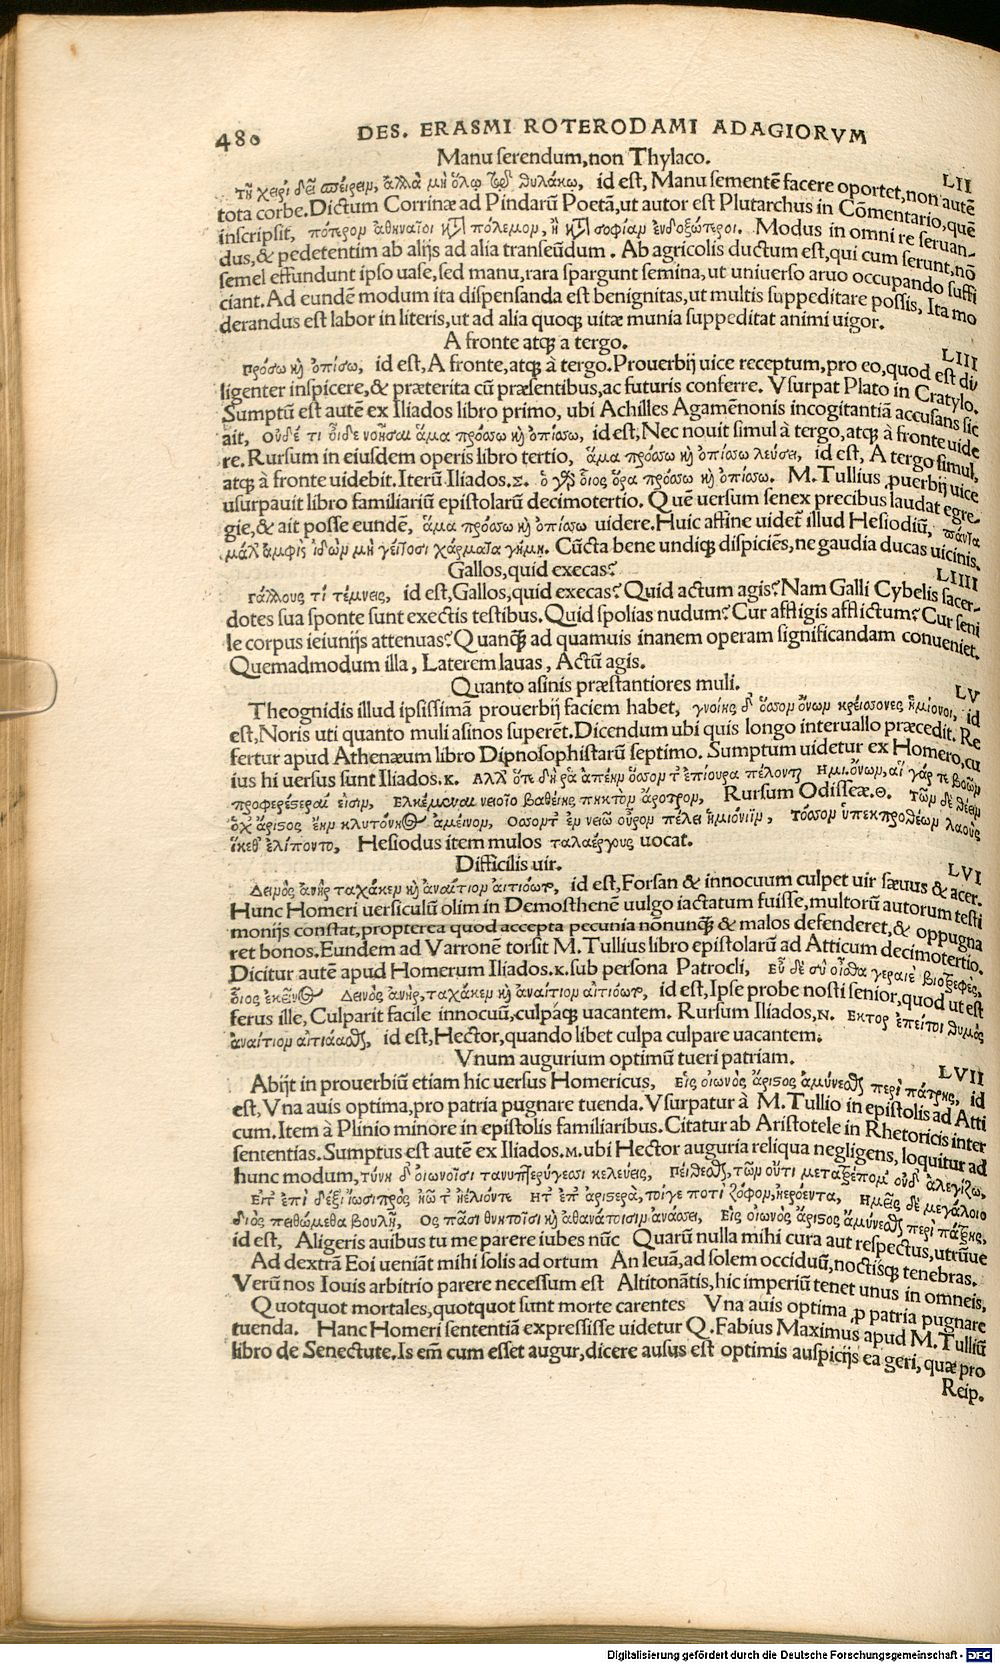 480 DES. ERASMI ROTERODAMI ADAGIORVM
Manu serendum, non Thylaco. LII
Τῇ χειρὶ δεῖ σπείρειν, ἀλλὰ μὴ ὅλῳ τῷ θυλάκῳ, id est, Manu sementē facere oportet, non autē
tota corbe. Dictum Corrinæ ad Pindarū Poetā, ut autor est Plutarchus in Cōmentario, quē
inscripsit, πότερον ἀθηναῖοι κατὰ πόλεμον, ἢ κατὰ σοφίαν ἐνδοξώτεροι. Modus in omni re seruan-
dus, & pedetentim ab alijs ad alia transeūdum. Ab agricolis ductum est, qui cum serunt, nō
semel effundunt ipso uase, sed manu, rara spargunt semina, ut uniuerso aruo occupando suffi
ciant. Ad eundē modum ita dispensanda est benignitas, ut multis suppeditare possis, Ita mo
derandus est labor in literis, ut ad alia quoqꝫ uitæ munia suppeditat animi uigor.
A fronte atqꝫ a tergo. LIII
πρόσω κỳ ὀπίσω, id est, A fronte, atqꝫ à tergo. Prouerbij uice receptum, pro eo, quod est di
ligenter inspicere, & præterita cū præsentibus, ac futuris conferre. Vsurpat Plato in Cratylo.
Sumptū est autē ex Iliados libro primo, ubi Achilles Agamēnonis incogitantiā accusans sic
ait, Οὐδέ τι οἶδε νοῆσαι ἅμα πρόσσω κỳ ὀπίσσω, id est, Nec nouit simul à tergo, atqꝫ à fronte uide
re. Rursum in eiusdem operis libro tertio, ἅμα πρόσσω κỳ ὀπίσσω λεύσει, id est, A tergo simul,
atqꝫ à fronte uidebit. Iterū Iliados. Σ. ὁ γὰρ οἶος ὅρα πρόσσω κỳ ὀπίσσω. M. Tullius ꝓuerbij uice
usurpauit libro familiariū epistolarū decimotertio. Quē uersum senex precibus laudat egre-
gie, & ait posse eundē, ἅμα πρόσσω κỳ ὀπίσσω uidere. Huic affine uidet̄ illud Hesiodiū, πάντα
μάλ᾽ ἀμφὶς ἰδὼν μὴ γείτοσι χάρματα γήμῃ. Cūcta bene undiqꝫ dispiciēs, ne gaudia ducas uicinis.
Gallos, quid execas? LIIII
Γάλλους τί τέμνεις, id est, Gallos, quid execas? Quid actum agis? Nam Galli Cybelis sacer-
dotes sua sponte sunt exectis testibus. Quid spolias nudum? Cur affligis afflictum? Cur seni
le corpus ieiunijs attenuas? Quanqꝫ̄ ad quamuis inanem operam significandam conueniet.
Quemadmodum illa, Laterem lauas, Actū agis.
Quanto asinis præstantiores muli. LV
Theognidis illud ipsissimā prouerbij faciem habet, γνοίης δ᾽ ὅσσον ὄνων κρέισσονες ἡμίονοι, id
est, Noris uti quanto muli asinos superēt. Dicendum ubi quis longo interuallo præcedit. Re
fertur apud Athenæum libro Dipnosophistarū septimo. Sumptum uidetur ex Homero, cu
ius hi uersus sunt Iliados. κ. Ἀλλ᾽ ὅτε δή ῥα ἀπέην ὅσσον τ᾽ ἐπίουρα πέλονται Ἡμιόνων, αἱ γάρ τε βοῶν
προφερέστεραί εἰσιν, Ἑλκέμεναι νειοῖο βαθείης πηκτὸν ἄροτρον, Rursum Odisseæ. Θ. Τῶν δὲ θέειν
ὄχ᾽ ἄριστος ἔην κλυτόνηος ἀμείνων, Ὅσσον τ᾽ ἐν νειῷ οὖρον πέλει ἡμιόνιϊν, τόσσον ὑπεκπροθέων λαοὺς
ἵκεθ᾽ ἐλίποντο, Hesiodus item mulos ταλαέργους uocat.
Difficilis uir. LVI
Δεινὸς ἀνὴρ ταχά κεν κỳ ἀναίτιον αἰτιόῳτο, id est, Forsan & innocuum culpet uir sæuus & acer.
Hunc Homeri uersiculū olim in Demosthenē uulgo iactatum fuisse, multorū autorum testi
monijs constat, propterea quod accepta pecunia nonunqꝫ̄ & malos defenderet, & oppugna
ret bonos. Eundem ad Varronē torsit M. Tullius libro epistolarū ad Atticum decimotertio.
Dicitur autē apud Homerum Iliados. κ. sub persona Patrocli, Εὖ δὲ σὺ οἶσθα γεραιὲ διοτρεφὲς,
οἷος ἐκεῖνος Δεινὸς ἀνὴρ, ταχά κεν κỳ ἀναίτιον αἰτιόῳτο, id est, Ipse probe nosti senior, quod ut est
ferus ille, Culparit facile innocuū, culpáqꝫ uacantem. Rursum Iliados, N. Ἕκτορ ἐπείτοι θυμὸς
ἀναίτιον αἰτιάασθαι, id est, Hector, quando libet culpa culpare uacantem.
Vnum augurium optimū tueri patriam. LVII
Abijt in prouerbiū etiam hic uersus Homericus, Εἷς οἰωνὸς ἄριστος ἀμύνεσθαι περὶ πάτρης, id
est, Vna auis optima, pro patria pugnare tuenda. Vsurpatur à M. Tullio in epistolis ad Atti
cum. Item à Plinio minore in epistolis familiaribus. Citatur ab Aristotele in Rhetoricis inter
sententias. Sumptus est autē ex Iliados. M. ubi Hector auguria reliqua negligens, loquitur ad
hunc modum, τύνη δ᾽ οἰωνοῖσι τανυπτερύγεσσι κελεύεις, Πείθεσθαι, τῶν οὔτι μετατρέπομ᾽ οὐδ᾽ ἀλεγίζω,
Εἴτ᾽ ἐπὶ δέξι᾽ ἴωσι πρὸς ἠῶ τ᾽ ἠέλιόν τε Ἤτ᾽ ἐπ᾽ ἀριστερὰ, τοίγε ποτὶ ζόφον, ἠερόεντα, Ἡμεῖς δὲ μεγάλοιο
διὸς πειθώμεθα βουλῇ, Ὃς πᾶσι θνητοῖσι κỳ ἀθανάτοισιν ἀνάσσει, Εἷς οἰωνὸς ἄριστος ἀμύνεσθαι περὶ πάτρης,
id est, Aligeris auibus tu me parere iubes nūc Quarū nulla mihi cura aut respectus, utrūue
Ad dextrā Eoi ueniāt mihi solis ad ortum An leuā, ad solem occiduū, noctisqꝫ tenebras.
Verū nos Iouis arbitrio parere necessum est Altitonātis, hic imperiū tenet unus in omneis,
Quotquot mortales, quotquot sunt morte carentes Vna auis optima ꝓ patria pugnare
tuenda. Hanc Homeri sententiā expressisse uidetur Q. Fabius Maximus apud M. Tulliū
libro de Senectute. Is em̄ cum esset augur, dicere ausus est optimis auspicijs ea geri, quæ pro
Reip.
Digitalisierung gefördert durch die Deutsche Forschungsgemeinschaft - DFG